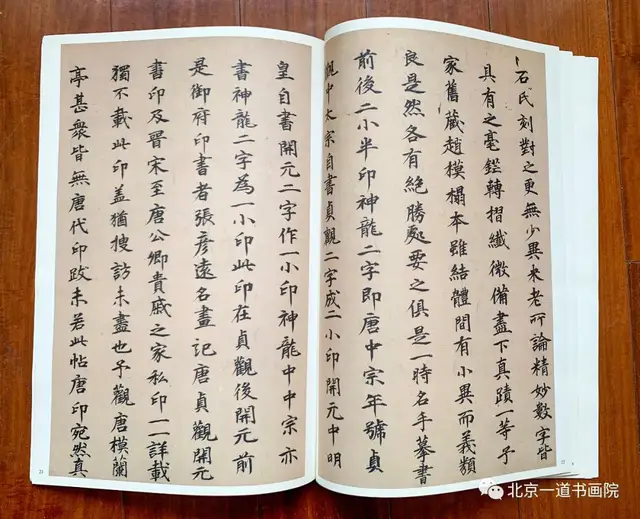 石氏刻對之更無少異米老所論精妙數字皆
具有之毫鋩轉摺纖微備盡下真蹟一等予
家舊藏趙模搨本雖結體間有小異而義類
良是然各有絶勝處要之俱是一時名手摹書
前後二小半印神龍二字即唐中宗年號貞
觀中太宗自書貞觀二字成二小印開元中明
皇自書開元二字作一小印神龍中中宗亦
書神龍二字為一小印此印在貞觀後開元前
是御府印書者張彥遠名畫記唐貞觀開元
書印及晉宋至唐公卿貴戚之家私印一一詳載
獨不載此印盖猶搜訪未盡也予觀唐模蘭
亭甚衆皆無唐代印跋未若此帖唐印宛然真
21
22
北京一道书画院